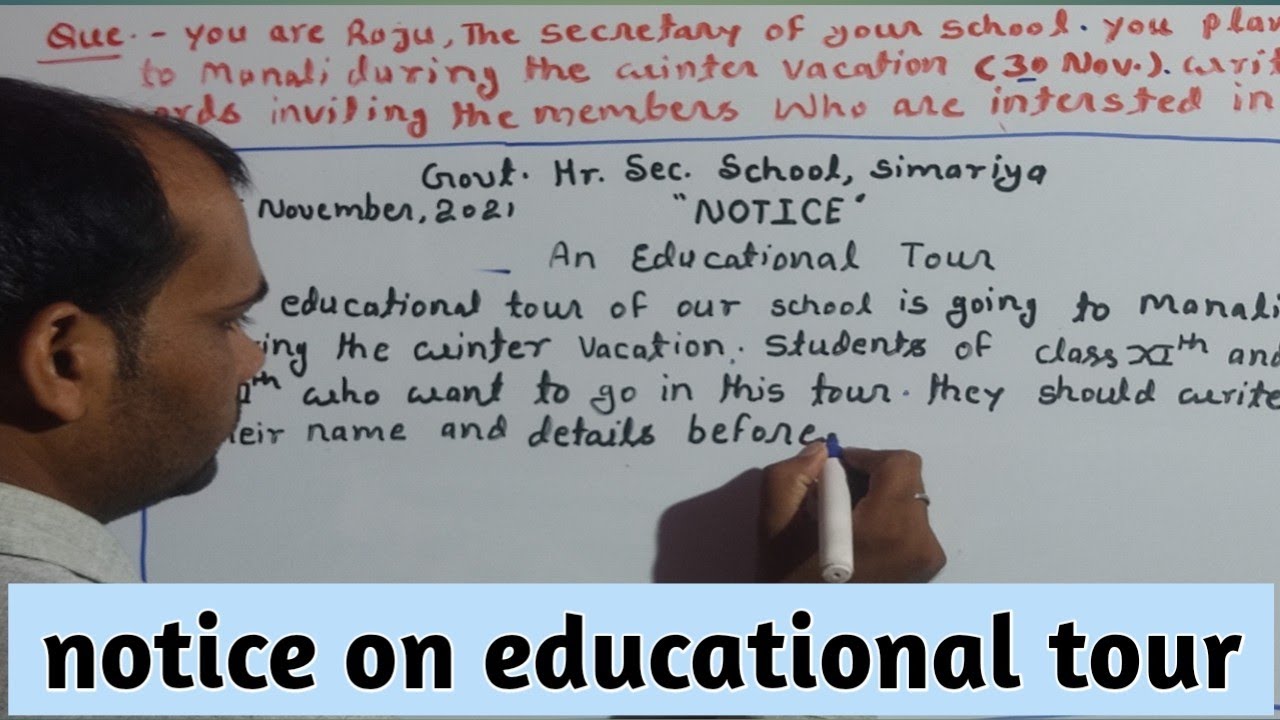 Que.- You are Raju, The secretary of your school. you plan
to Manali during the winter vacation (30 Nov.). writ
ords inviting the members who are intersted in
Govt. Hr. Sec. School, Simariya
November, 2021 "NOTICE"
An Educational Tour
educational tour of our school is going to Manali
ing the winter vacation. Students of class XIth and
th who want to go in this tour. they should write
eir name and details before
notice on educational tour